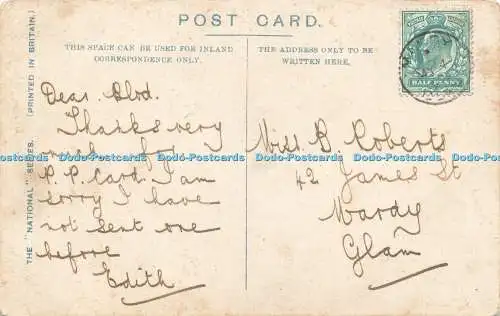 POST CARD.
THIS SPACE CAN BE USED FOR INLAND
CORRESPONDENCE ONLY.
THE ADDRESS ONLY TO BE
WRITTEN HERE.
HALF PENNY
THE "NATIONAL" SERIES.
(PRINTED IN BRITAIN.)
Dear
Thanks very
much for
P. P Card. I am
sorry I have
not sent one
before
Edith
Miss B. Roberts
42 James St
Mardy
Glam
Dodo-Postcards Dodo-Postcards Dodo-Postcards Dodo-Postcards Dodo-Postcards
Dodo-Postcards Dodo-Postcards Dodo-Postcards Dodo-Postcards Dodo-Postcards